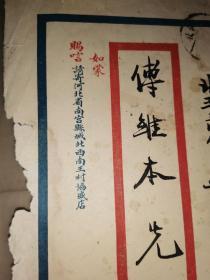 傅維本先
如蒙
賜言請寄河北省南宮縣城北西南王村協盛店